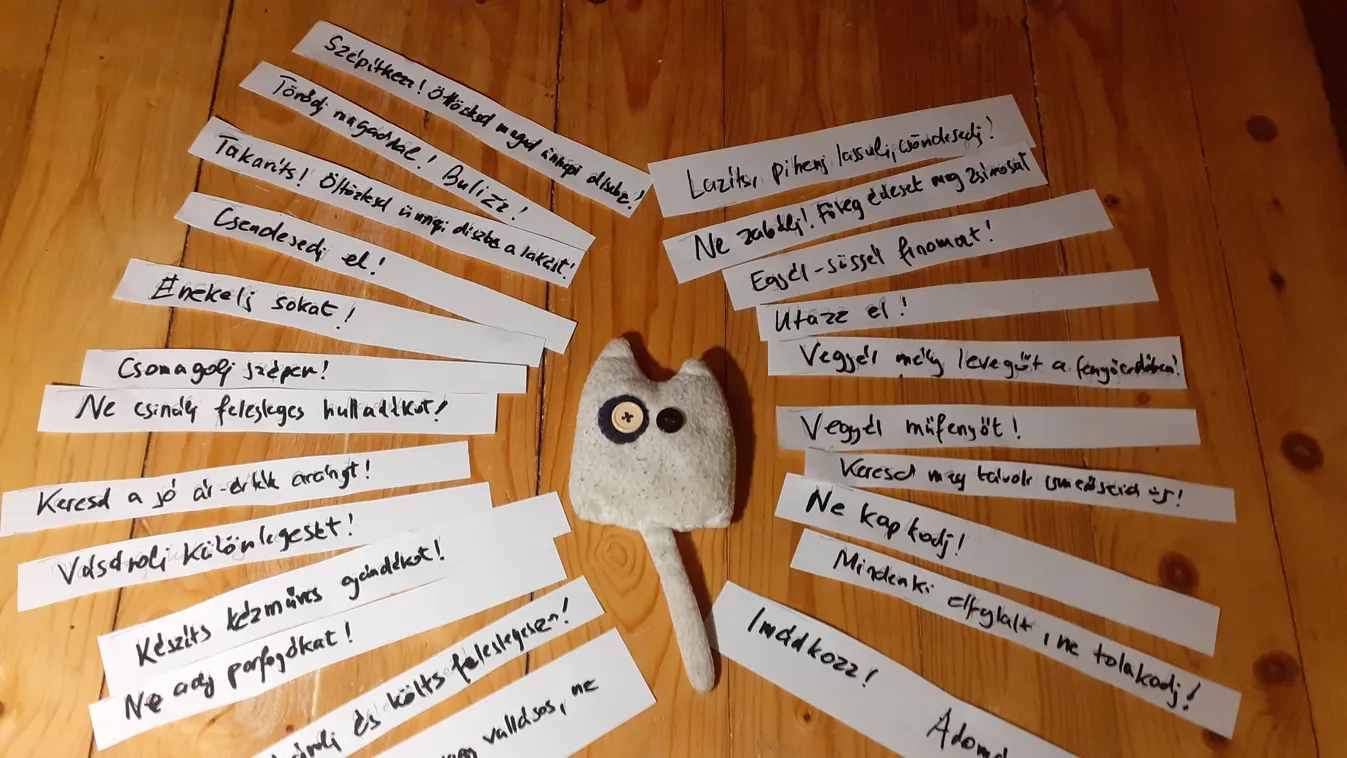 Szépítkezz! Öltöztesd magad ünnepi díszbe!
Törődj magaddal! Bulizz!
Takaríts! Öltöztesd ünnepi díszbe a lakást!
Csendesedj el!
Énekelj sokat!
Csomagolj szépen!
Ne csinálj felesleges hulladékot!
Keresd a jó ár-érték arányt!
Vásárolj különlegeset!
Készíts kézműves ajándékot!
Ne adj porfogókat!
és költs feleslegesen!
vallásos, ne
Lazíts, pihenj, lassulj, csöndesedj!
Ne zabálj! Főleg édeset meg zsírosat
Egyél-süssél finomat!
Utazz el!
Vegyél mély levegőt a fenyőerdőben!
Vegyél műfenyőt!
Keresd meg távoli ismerőseid is!
Ne kapkodj!
Mindenki elfoglalt, ne tolakodj!
Imádkozz!